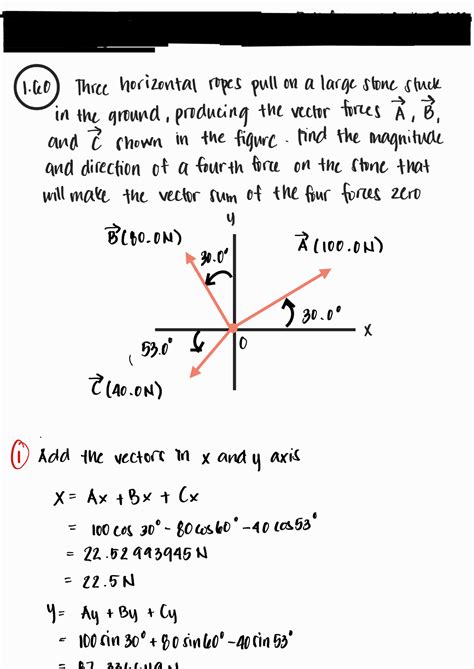 1.60 Three horizontal ropes pull on a large stone stuck
in the ground, producing the vector forces A⃗, B⃗,
and C⃗ shown in the figure. Find the magnitude
and direction of a fourth force on the stone that
will make the vector sum of the four forces zero
y
B⃗(80.0N)
A⃗(100.0N)
30.0°
30.0°
x
53.0°
O
C⃗(40.0N)
1 Add the vectors in x and y axis
x = Ax + Bx + Cx
= 100 cos 30° - 80 cos 60° - 40 cos 53°
= 22.52993945 N
= 22.5 N
y = Ay + By + Cy
= 100 sin 30° + 80 sin 60° - 40 sin 53°